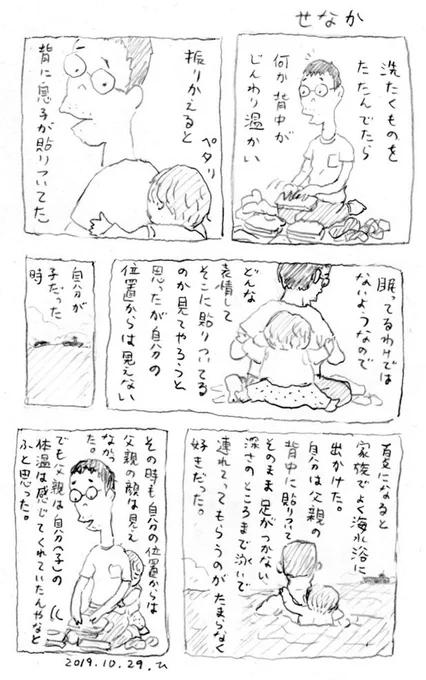 せなか
洗たくものを
たたんでたら
何か背中が
じんわり温かい
振りかえると
ペタリ
背に息子が貼りついてた
眠ってるわけでは
ないようなので
どんな
表情して
そこに貼りついてる
のか見てやろうと
思ったが自分の
位置からは見えない
自分が
子だった
時
夏になると
家族でよく海水浴に
出かけた。
自分は父親の
背中に貼りついて
そのまま足がつかない
深さのところまで泳いで
連れてってもらうのがたまらなく
好きだった。
その時も自分の位置からは
父親の顔は見え
なかっ
た。
でも父親は自分(子)の
体温は感じてくれていたんやなと
ふと思った。
2019.10.29.ひ